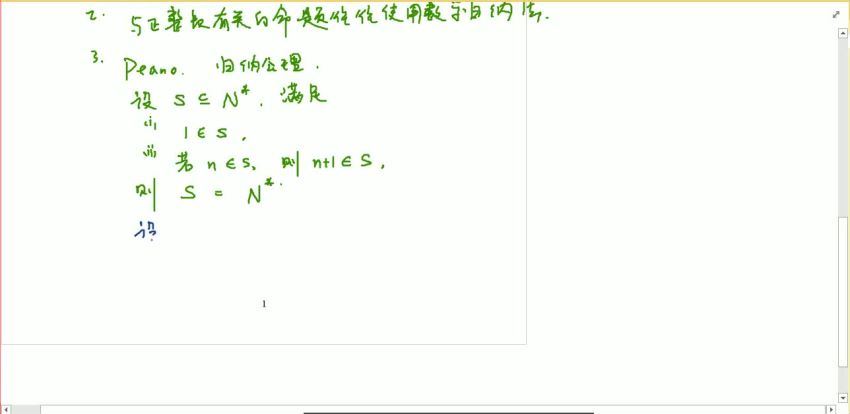 2. 与正整数有关的命题往往使用数学归纳法.
3. Peano. 归纳公理.
设 S ⊆ N*. 满足
(i) 1 ∈ S,
(ii) 若 n ∈ S, 则 n+1 ∈ S,
则 S = N*.
设
1